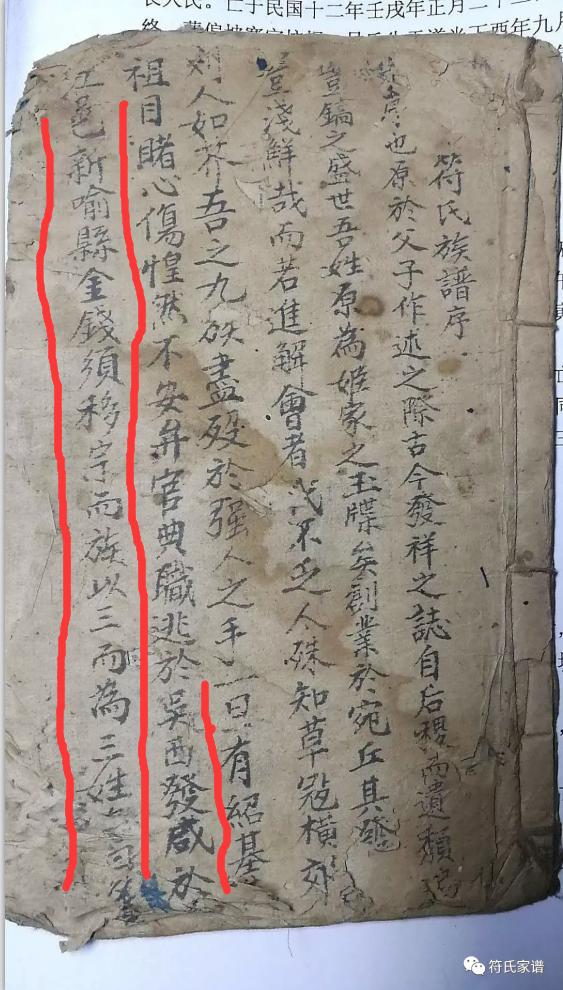 長人民。亡于民國十二年壬戌年正月二十二
符氏族譜序
也原於父子作述之際古今發祥之誌自后稷而遺類
豊鎬之盛世吾姓原為姬家之玉牒矣創業於宛丘其發
豈淺鮮哉而若進解會者代不乏人殊知草寇橫
人如芥吾之九族盡歿於强人之手一旦有紹基
祖目睹心傷惶然不安弁官典職逃於吳西發咸於
江邑新喻縣金錢須移宗而族以三而為三姓
符氏家谱